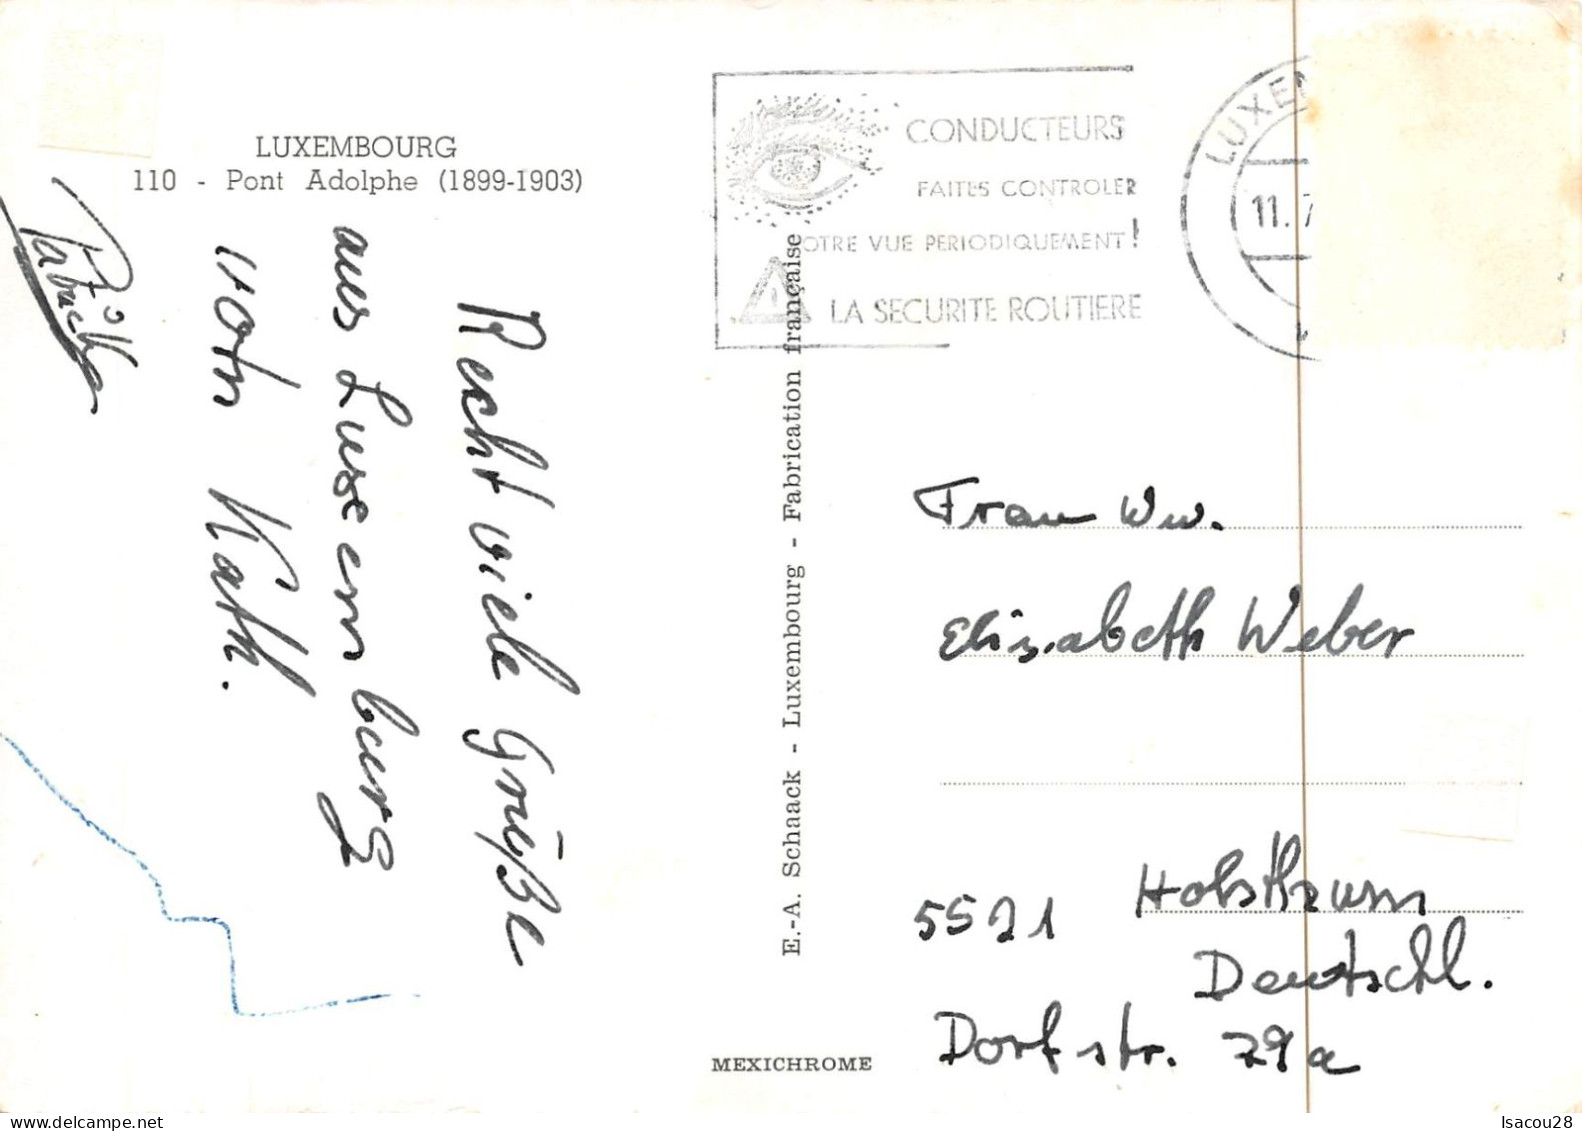 LUXEMBOURG
110 - Pont Adolphe (1899-1903)
Recht viele Grüße
aus Luxemburg
von Kath.
CONDUCTEURS
FAITES CONTROLER
OTRE VUE PERIODIQUEMENT!
LA SECURITE ROUTIERE
LUXEM
11.7
E.-A. Schaack - Luxembourg - Fabrication française
Frau Ww.
Elisabeth Weber
5521 Holsthum
Deutschl.
Dorfstr. 29a
MEXICHROME
Isacou28